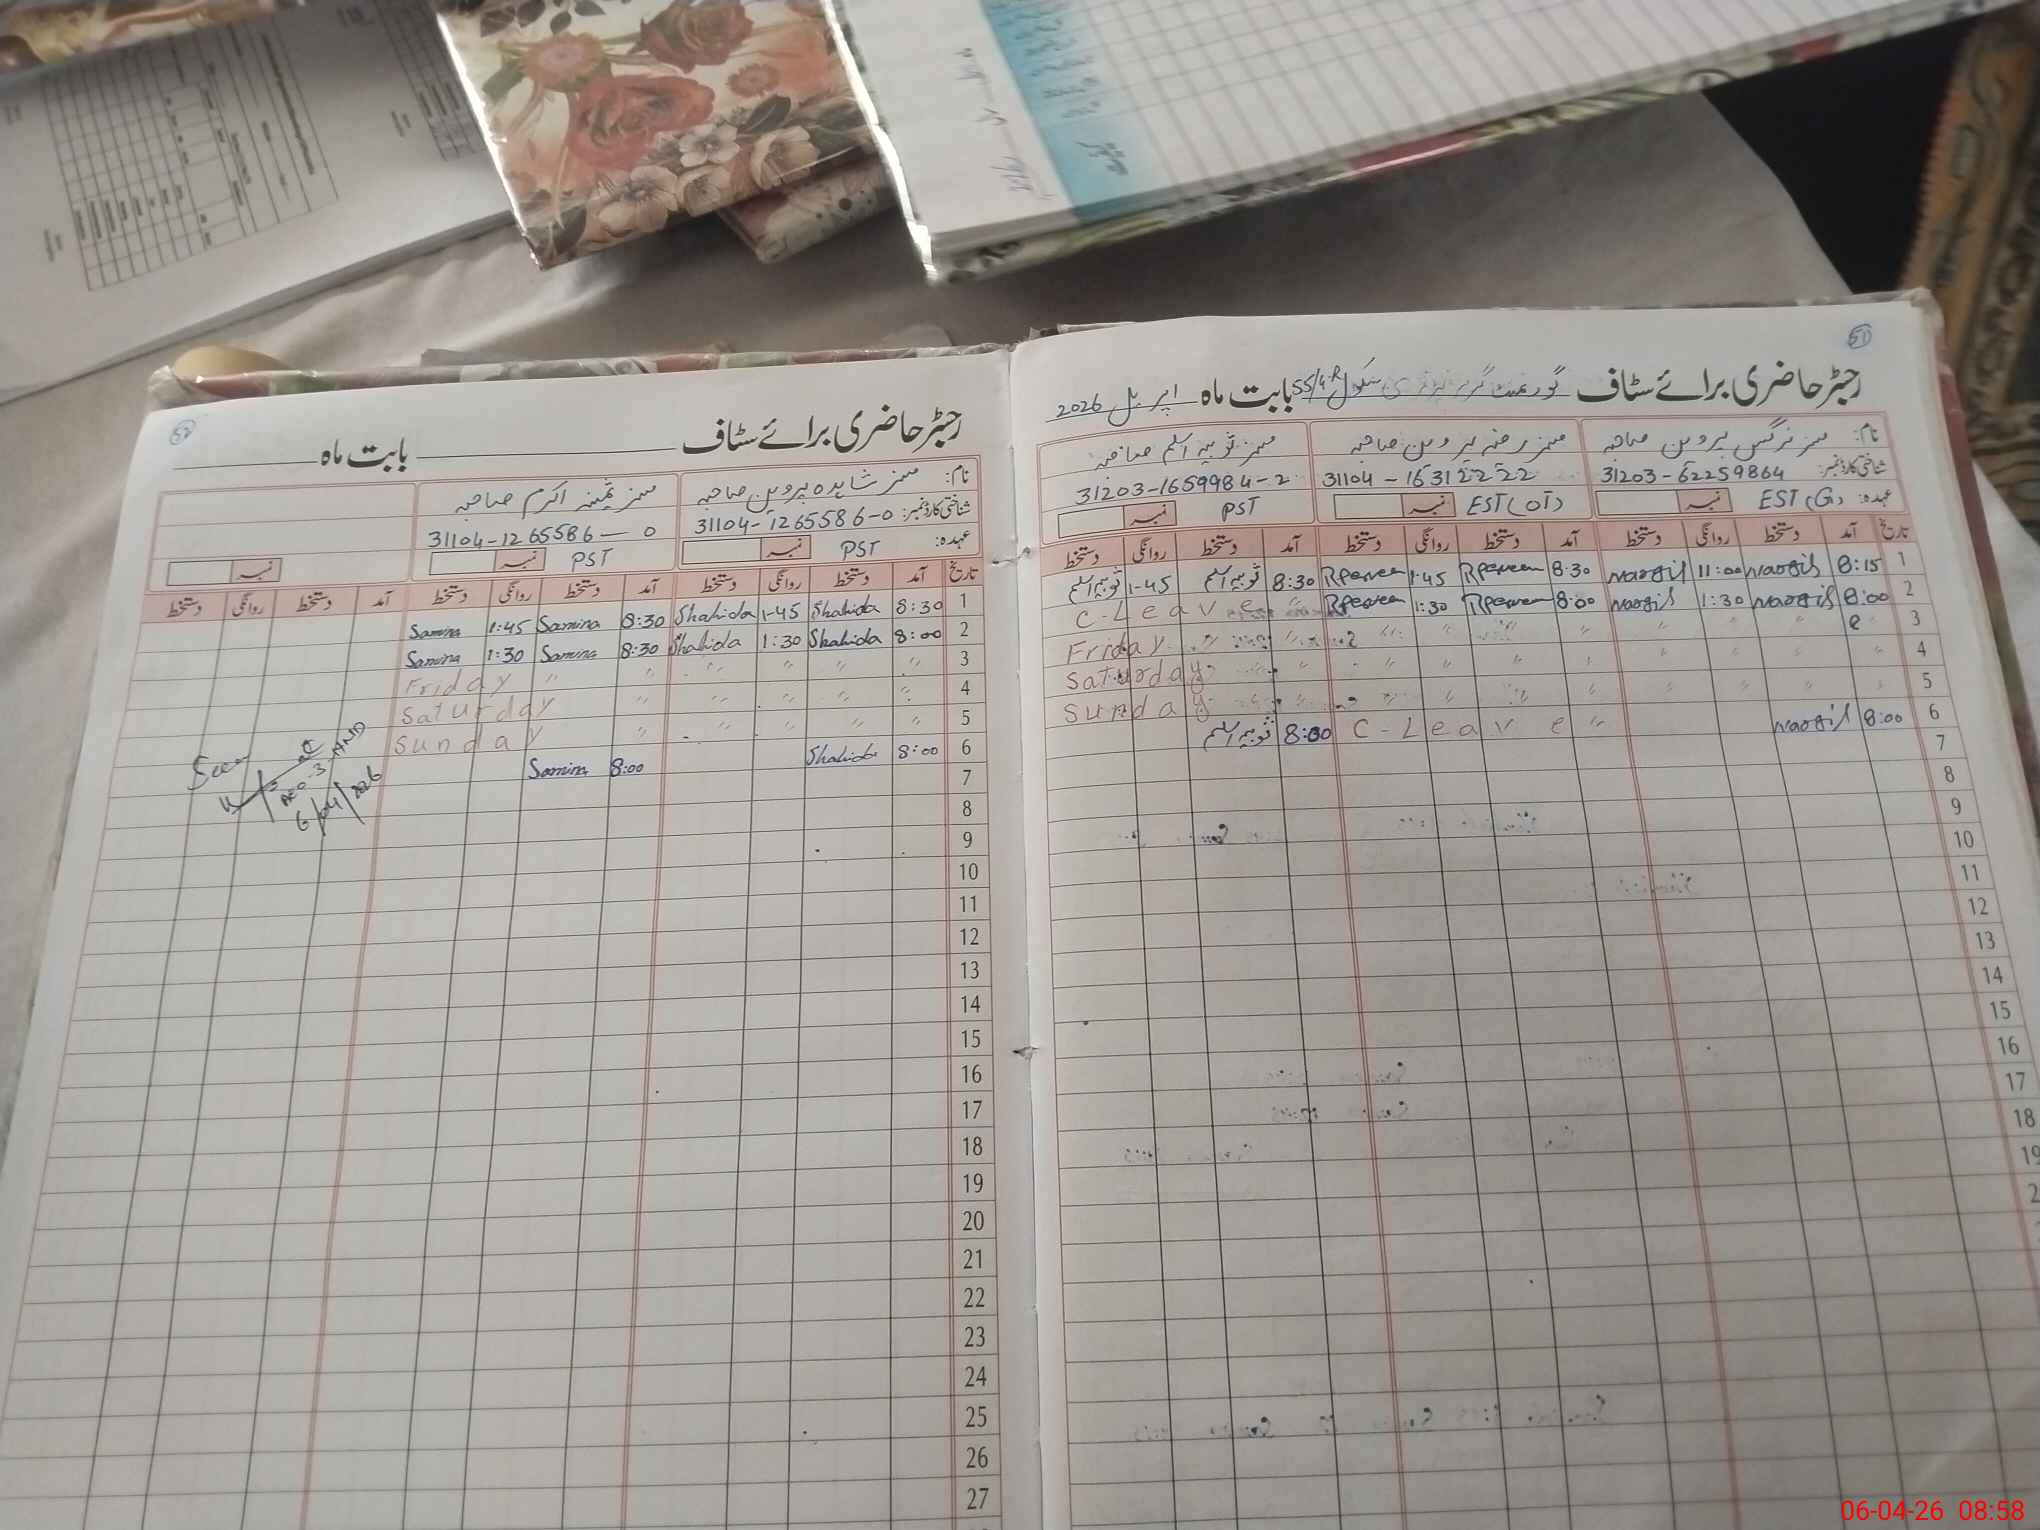 51
رجسٹر حاضری برائے سٹاف گورنمنٹ گرلز پرائمری سکول 55/4.R بابت ماہ اپریل 2026
نام: مسز نرگس پروین صاحبہ
شناختی کارڈ نمبر: 31203-62259864
عہدہ: EST (G) نمبر
مسز رضیہ پروین صاحبہ
31104-16312222
EST (OT) نمبر
مسز ثوبیہ اسلم صاحبہ
31203-1659984-2
PST نمبر
تاریخ آمد دستخط روانگی دستخط آمد دستخط روانگی دستخط آمد دستخط روانگی دستخط
1 8:15 Nargis 11:00 Nargis 8:30 RParveen 1:45 RParveen 8:30 ثوبیہ اسلم 1-45 ثوبیہ اسلم
2 8:00 Nargis 1:30 Nargis 8:00 RParveen 1:30 RParveen C-Leave
3 Friday
4 Saturday
5 Sunday
6 8:00 Nargis C-Leave 8:00 ثوبیہ اسلم
7
8
9
10
11
12
13
14
15
16
17
18
19
52
رجسٹر حاضری برائے سٹاف بابت ماہ
نام: مسز شاہدہ پروین صاحبہ
شناختی کارڈ نمبر: 31104-1265586-0
عہدہ: PST نمبر
مسز ثمینہ اکرم صاحبہ
31104-1265586-0
PST نمبر
نمبر
تاریخ آمد دستخط روانگی دستخط آمد دستخط روانگی دستخط آمد دستخط روانگی دستخط
1 8:30 Shahida 1-45 Shahida 8:30 Samina 1:45 Samina
2 8:00 Shahida 1:30 Shahida 8:30 Samina 1:30 Samina
3 Friday
4 Saturday
5 Sunday
6 8:00 Shahida 8:00 Samina
7
8
9
10
11
12
13
14
15
16
17
18
19
20
21
22
23
24
25
26
27
Seen
AEO-3-HND
6/04/2026
06-04-26 08:58